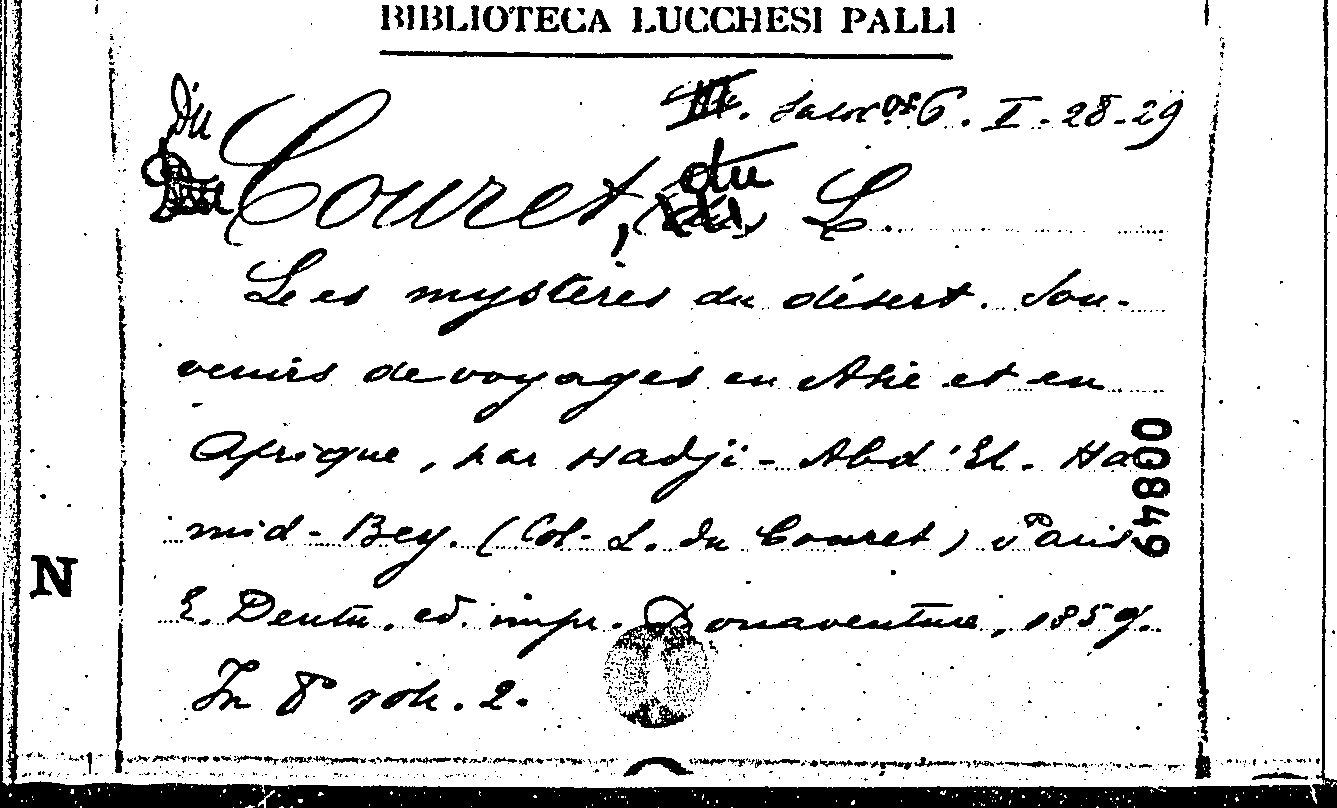 BIBLIOTECA LUCCHESI PALLI
6. I. 28-29
Du
Couret, du L.
Les mystères du désert. Sou-
venirs de voyages en Asie et en
Afrique, par Hadji-Abd'El. Ha
mid-Bey. (Col. L. du Couret) Paris
E. Dentu, ed. impr. Bonaventure, 1859.
In 8° vol. 2.
00849
N